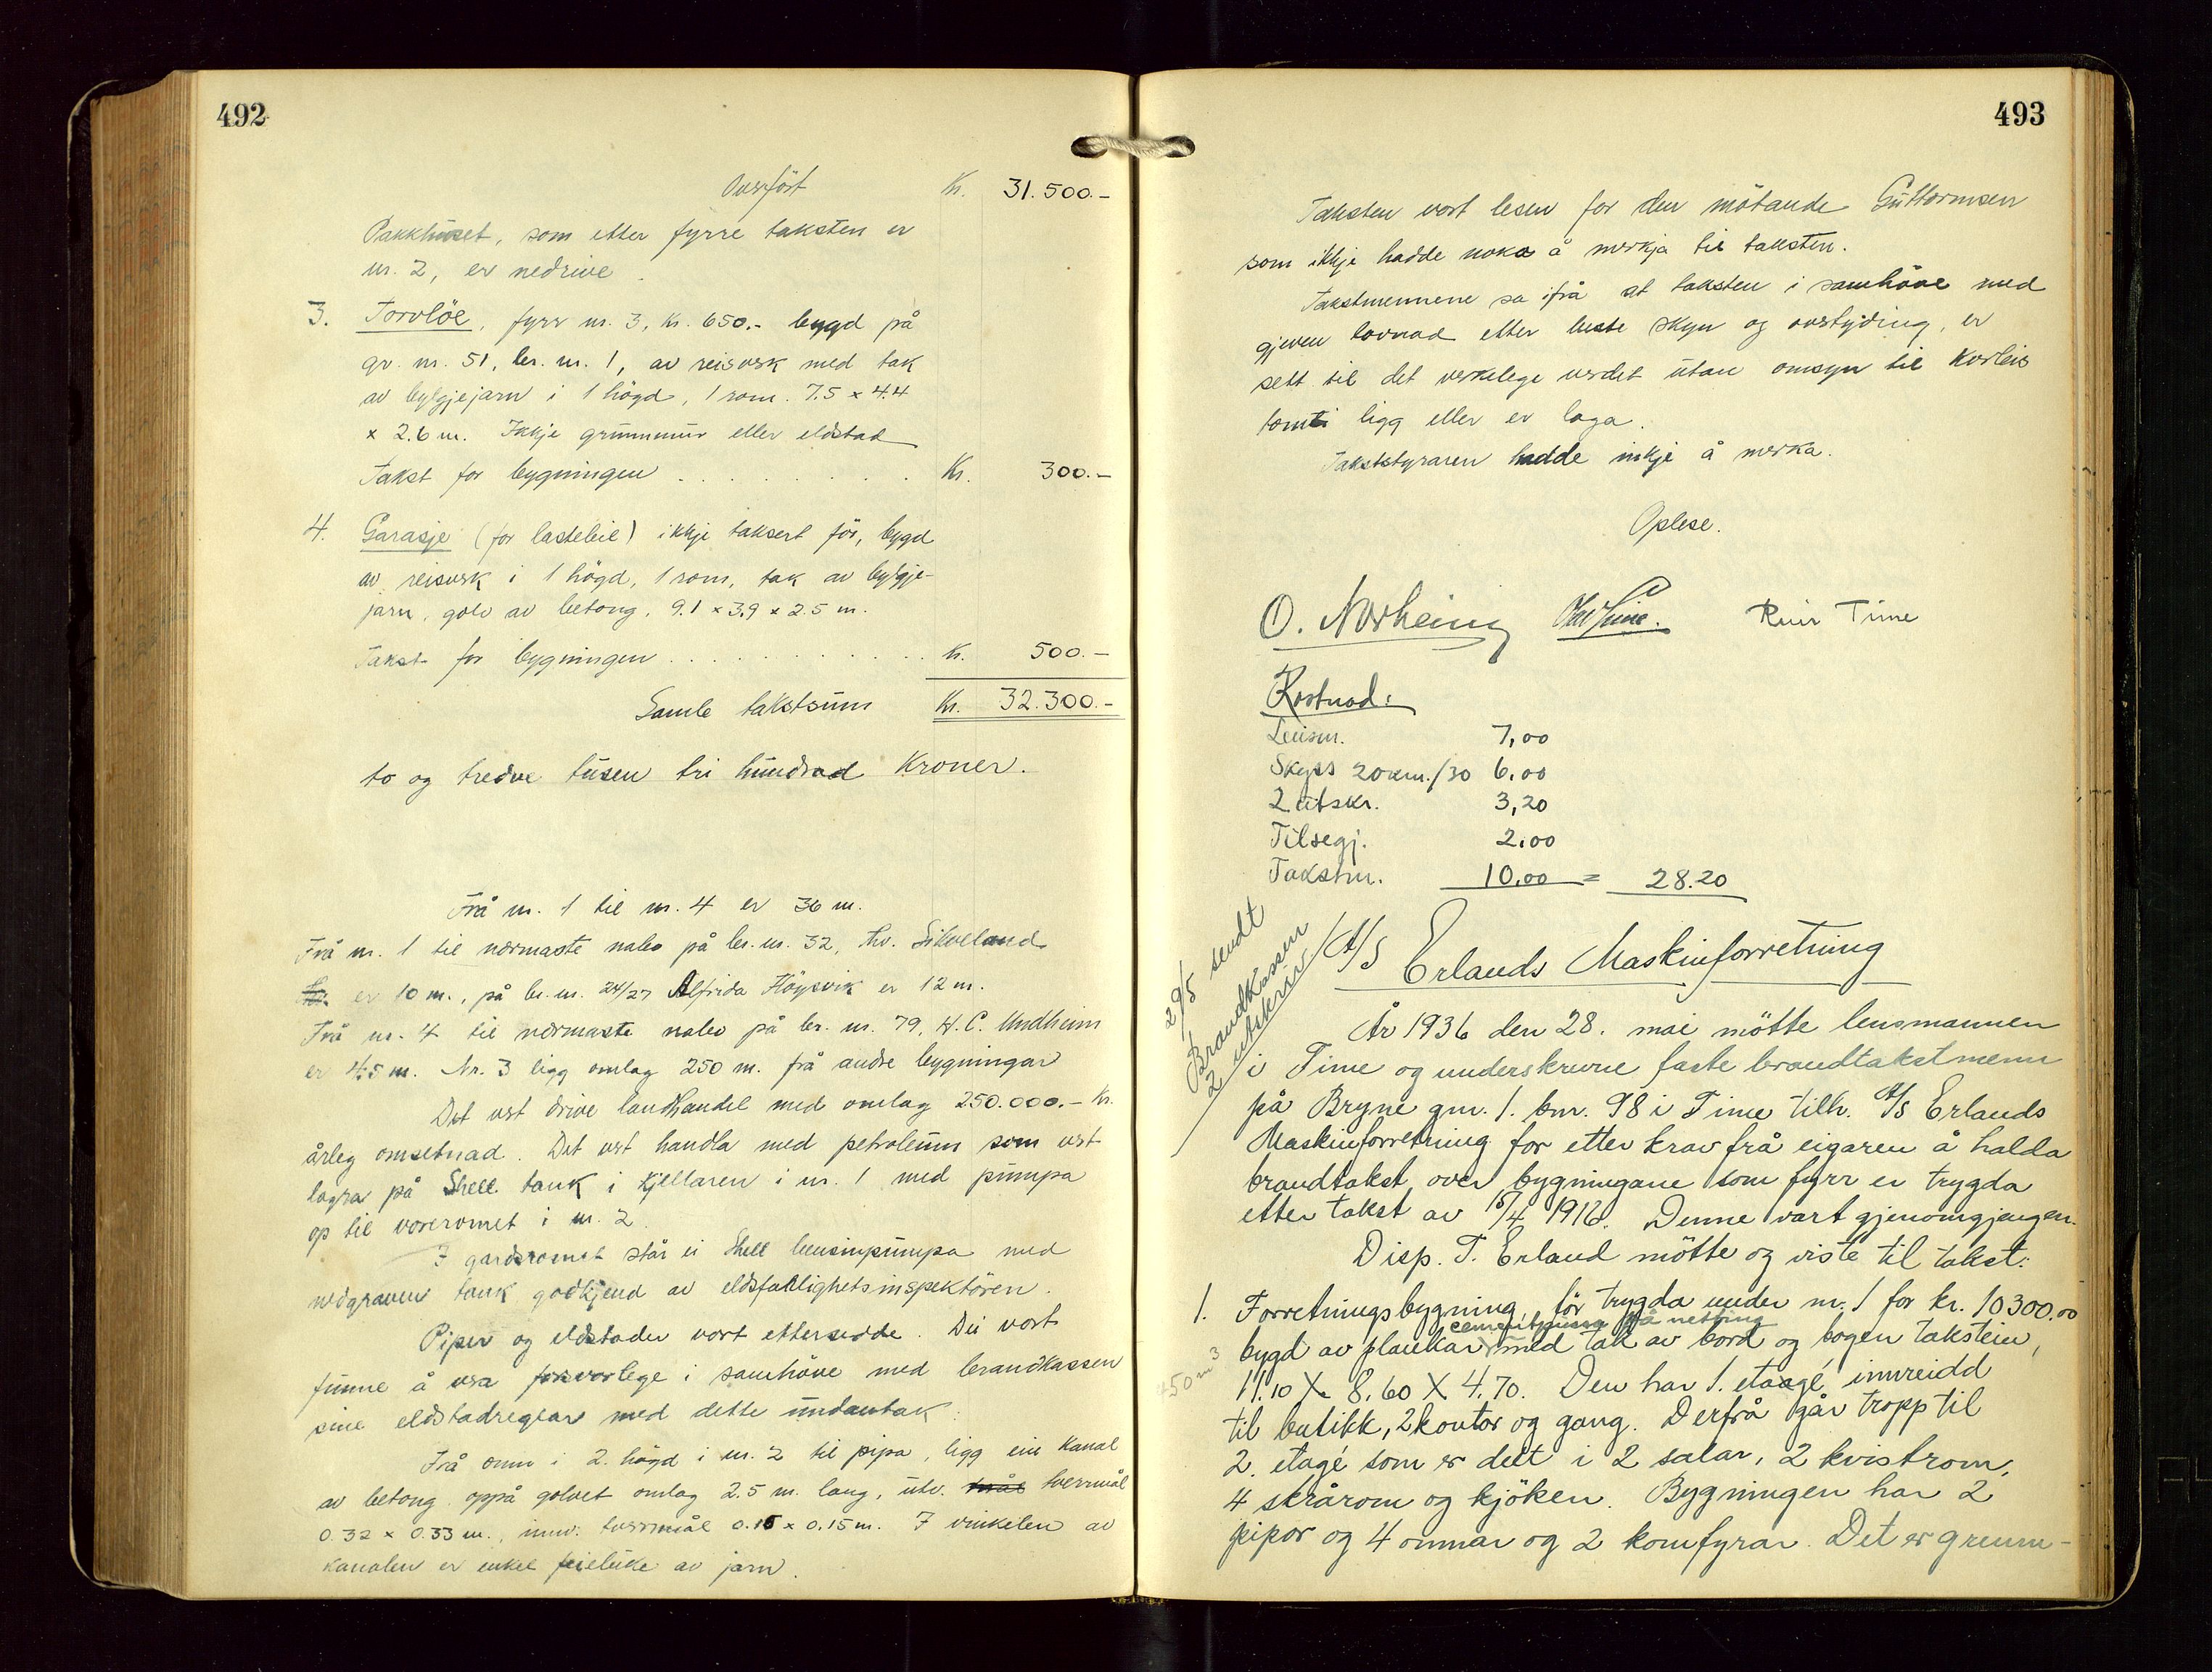 492
Overfört Kr. 31.500.-
Pakkhuset, som etter fyrre taksten er
nr. 2, er nedrive.
3. Torvlöe, fyrr nr. 3, kr. 650.- bygd på
gr. nr. 51, br. nr. 1, av reisverk med tak
av bylgjejarn i 1 högd, 1 rom. 7.5 x 4.4
x 2.6 m. Ikkje grunnmur eller eldstad
Takst for bygningen . . . . . . . . . Kr. 300.-
4. Garasje (for lastebil) ikkje taksert för, bygd
av reisverk i 1 högd, 1 rom, tak av bylgje-
jarn, golv av betong. 9.1 x 3.9 x 2.5 m.
Takst for bygningen . . . . . . . . . . . Kr. 500.-
Samla takstsum Kr. 32.300.-
to og tredve tusen tri hundrad kroner.
Frå nr. 1 til nr. 4 er 36 m.
Frå nr. 1 til nærmaste nabo på br. nr. 32, Thv. Sikveland
er 10 m., på br. nr. 24/27 Alfrida Högsvik er 12 m.
Frå nr. 4 til nærmaste nabo på br. nr. 79, H. C. Undheim
er 4.5 m. Nr. 3 ligg omlag 250 m. frå andre bygningar
Det vert drive landhandel med omlag 250.000.- kr.
årleg omsetnad. Det vert handla med petroleum som vert
lagra på Shell tank i kjellaren i nr. 1 med pumpa
op til vareromet i nr. 2.
I gardsromet står ei Shell bensinpumpa med
nedgraven tank godkjend av eldsfarlighetsinspektören.
Piper og eldstader vart ettersedde. Dei vart
funne å vera forsvarlege i samhöve med brandkassen
sine eldstadreglar med dette undantak.
Frå omn i 2. högd i nr. 2 til pipa, ligg ein kanal
av betong oppå golvet omlag 2.5 m. lang, utv. tverrmål
0.32 x 0.33 m., innv. tverrmål 0.15 x 0.15 m. I vinkelen av
kanalen er enkel feieluke av jarn.
493
Taksten vart lesen for den mötande Guttormsen
som ikkje hadde noko å merkja til taksten.
Takstmennene sa ifrå at taksten i samhöve med
gjeven lovnad etter beste skyn og overtyding, er
sett til det verkelege verdet utan omsyn til korleis
tomti ligg eller er laga.
Takststyraren hadde inkje å merka.
Oplese.
O. Norheim Olav Time. Reier Time
Kostnad:
Lensm. 7,00
Skyss 20 km./30 6.00
2 utskr. 3,20
Tilsegj. 2.00
Takstm. 10.00 = 28.20
29/5 sendt
Brandkassen
2 utskriv
A/S Erlands Maskinforretning
År 1936 den 28. mai mötte lensmannen
i Time og underskrivne faste brandtakstmenn
på Bryne gnr. 1. bnr. 98 i Time tilh. A/S Erlands
Maskinforretning for etter krav frå eigaren å halda
brandtakst over bygningane som fyrr er trygda
etter takst av 15/4 1916. Denne vart gjenomgjengen.
Disp. T. Erland mötte og viste til takst:
1. Forretningsbygning, för trygda under nr. 1 for kr. 10300.00
cementpuss på netting
bygd av plankar med tak av bord og bogen takstein,
450 m³
11.10 X 8.60 X 4.70. Den har 1. etagé innreidd
til butikk, 2 kontor og gang. Derfrå går tropp til
2. etagé som er delt i 2 salar, 2 kvistrom,
4 skrårom og kjöken. Bygningen har 2
pipor og 4 omnar og 2 komfyrar. Det er grunn-